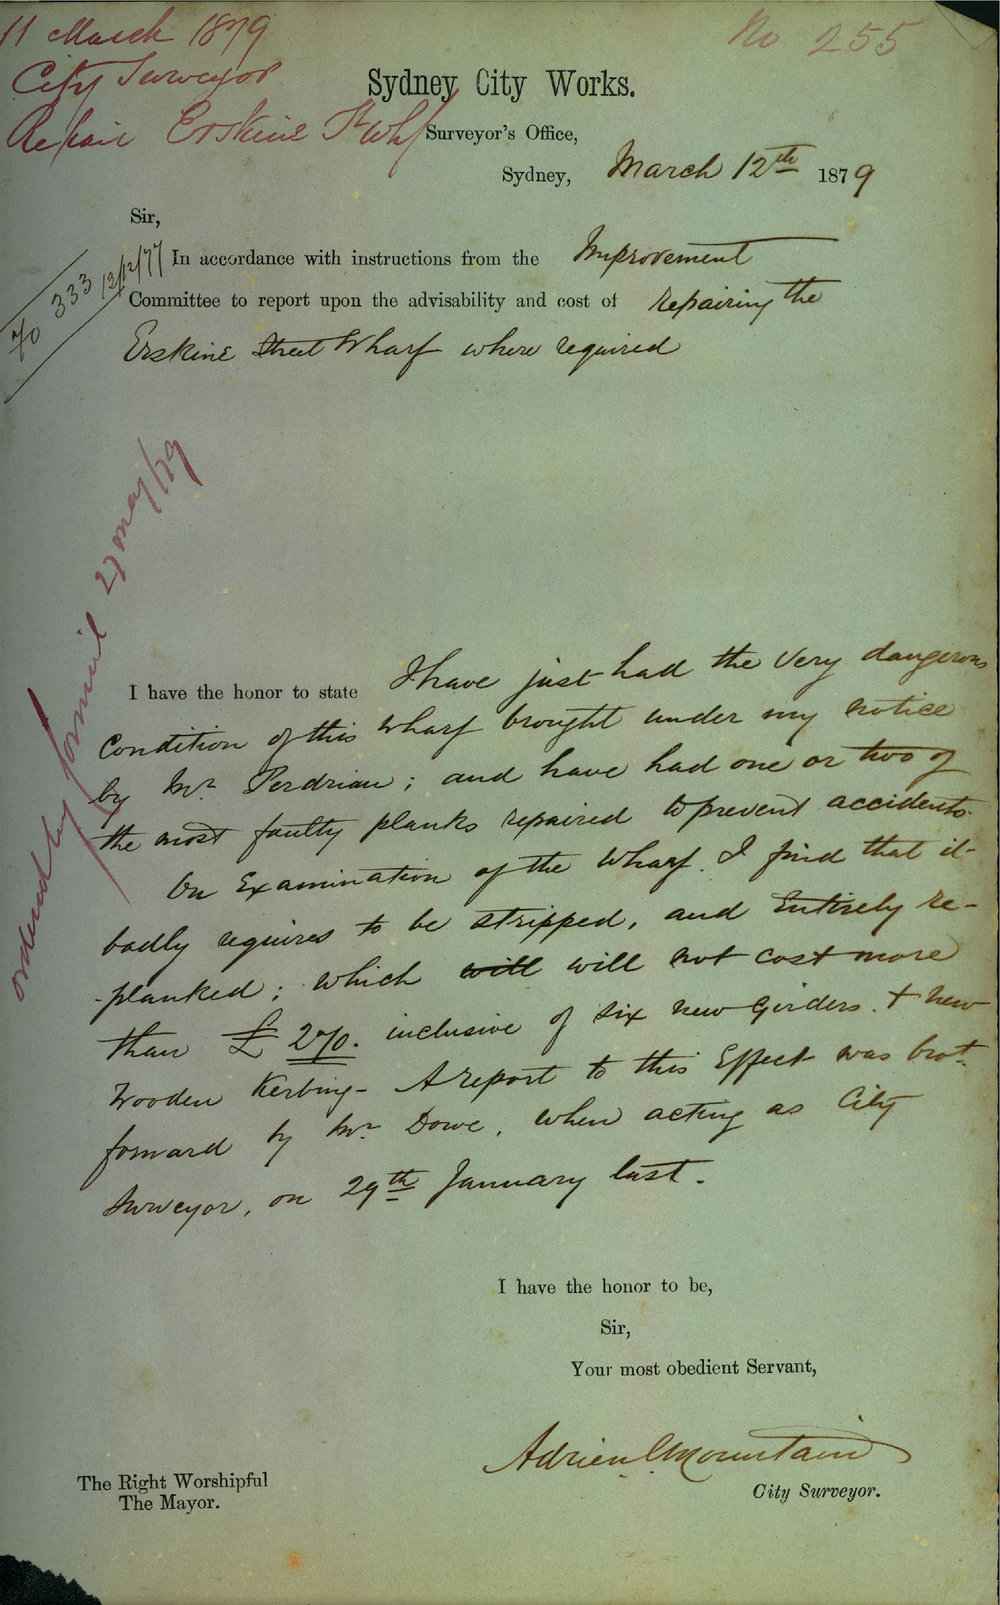 11 March 1879
No 255
City Surveyor
Repair Erskine St Whf
Sydney City Works.
Surveyor's Office,
Sydney, March 12th 1879
Sir,
In accordance with instructions from the Improvement
Committee to report upon the advisability and cost of repairing the
Erskine Street Wharf where required
333 12/12/77
ordered by 27 May/79
I have the honor to state I have just had the very dangerous
condition of this Wharf brought under my notice
by Mr Perdriau; and have had one or two of
the most faulty planks repaired to prevent accidents.
On Examination of the Wharf. I find that it
badly requires to be stripped, and Entirely re-
-planked; which will will not cost more
than £270. inclusive of six new Girders. & new
Wooden Kerbing - A report to this Effect was brot
forward by Mr Dowe, when acting as City
Surveyor, on 29th January last.
I have the honor to be,
Sir,
Your most obedient Servant,
Adrien C Mountain
City Surveyor.
The Right Worshipful
The Mayor.